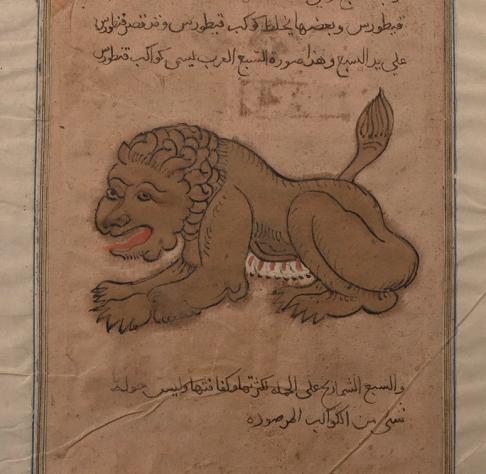 قيطورس وبعضها يختلط بكوكب قيطورس وقد قصر قنطورس
على يد السبع وهذا صورة السبع العرب ليسمى كواكب قنطورس
والسبع الشماريخ على الجملة لكثرتها وكثافتها وليس حوله
شىء من الكواكب المرصوده